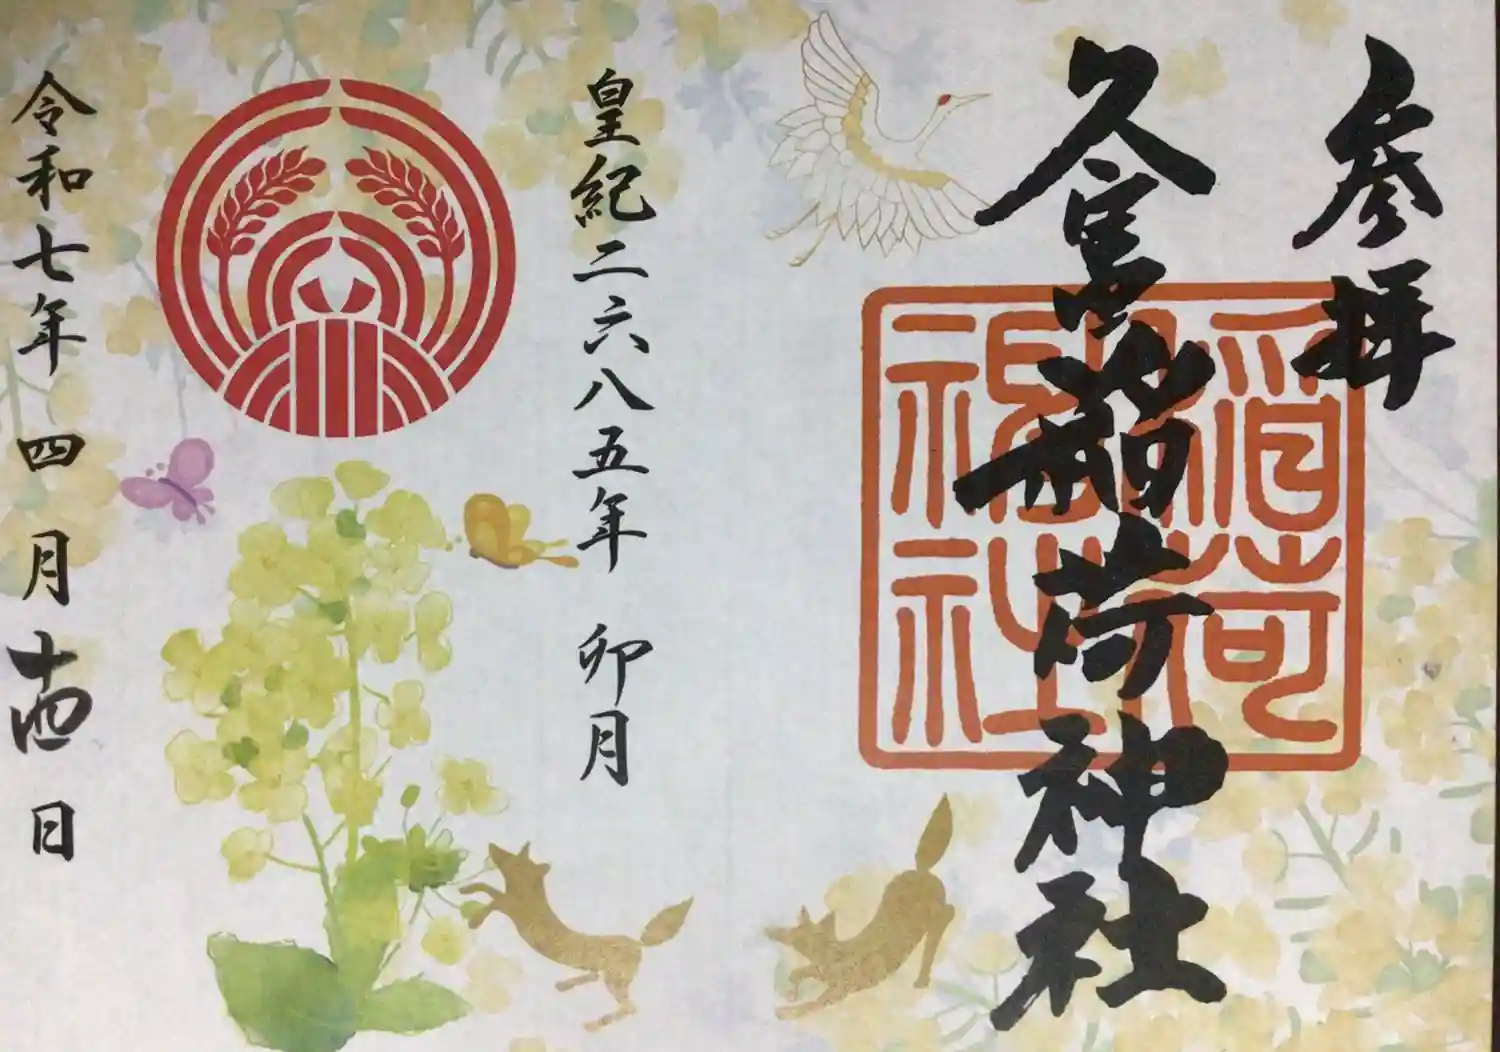 参拝
久富稲荷神社
稲荷神社
皇紀二六八五年 卯月
令和七年 四月十四日